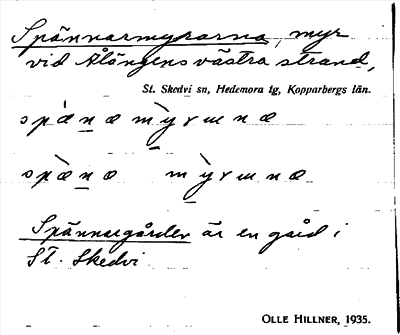 Spännarmyrarna, myr
vid Ålängens västra strand,
St. Skedvi sn, Hedemora tg, Kopparbergs län.
spæ̀næ mỳrɯnæ
spæ̀næ mỳrɯnæ
Spännargården är en gård i
St. Skedvi
OLLE HILLNER, 1935.